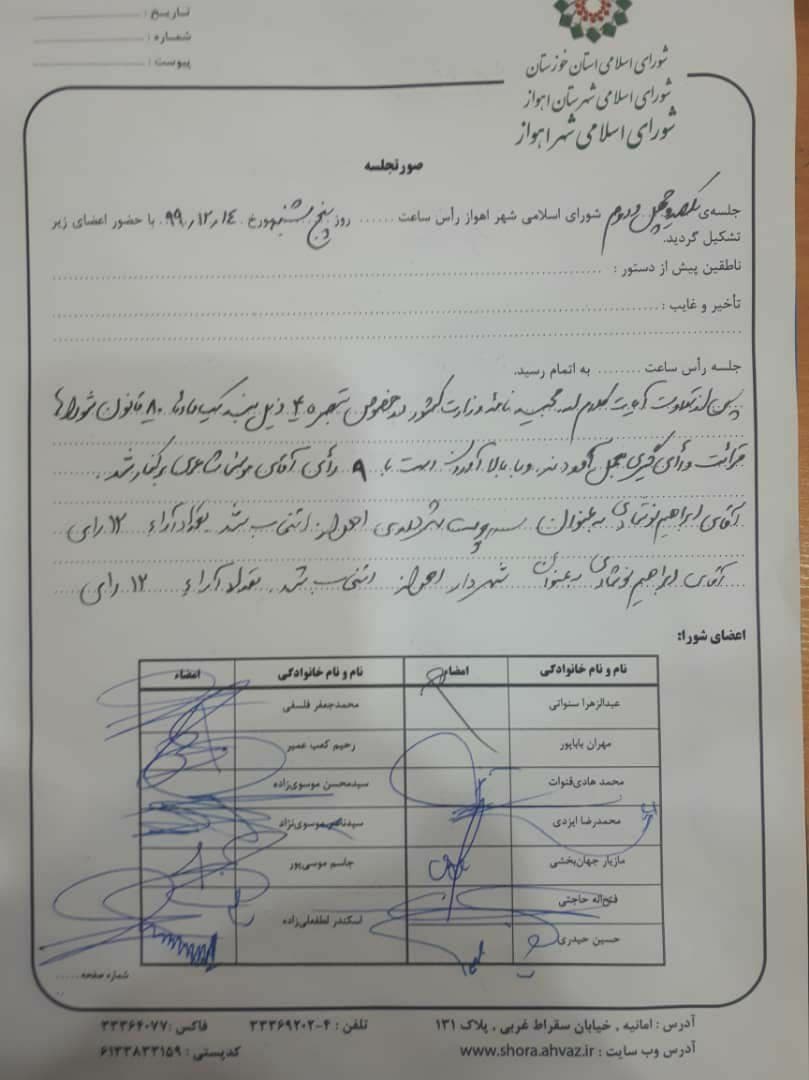 تاریخ :
شماره :
پیوست :
شورای اسلامی استان خوزستان
شورای اسلامی شهرستان اهواز
شورای اسلامی شهر اهواز
صورتجلسه
جلسه‌ی یکصد و چهل و دوم شورای اسلامی شهر اهواز رأس ساعت ...... روز پنج شنبه مورخ ۹۹,۱۲,۱۴ با حضور اعضای زیر
تشکیل گردید.
ناطقین پیش از دستور :
تأخیر و غایب :
جلسه رأس ساعت ........ به اتمام رسید.
پس از تلاوت آیات کلام الله مجید نامه وزارت کشور در خصوص تبصره ۴ ذیل بند یک ماده ۸۰ قانون شوراها
قرائت و رأی گیری بعمل آمد و با بالا آوردن دست با ۹ رأی آقای موسی شاعری برکنار شد.
آقای ابراهیم نوشادی به عنوان سرپرست شهرداری اهواز انتخاب شد تعداد آراء ۱۲ رای
آقای ابراهیم نوشادی به عنوان شهردار اهواز انتخاب شد. تعداد آراء ۱۲ رای
اعضای شورا:
نام و نام خانوادگی امضاء نام و نام خانوادگی امضاء
عبدالزهرا سنواتی محمدجعفر فلسفی
مهران باباپور رحیم کعب عمیر
محمد هادی‌قنوات سیدمحسن موسوی‌زاده
محمدرضا ایزدی سیدناصر موسوی‌نژاد
مازیار جهان‌بخشی جاسم موسی‌پور
فتح‌اله حاجتی اسکندر لطفعلی‌زاده
حسین حیدری
شماره صفحه......
آدرس : امانیه ، خیابان سقراط غربی ، پلاک ۱۳۱ تلفن : ۴-۳۳۳۶۹۲۰۲ فاکس : ۳۳۳۶۴۰۷۷
آدرس وب سایت : www.shora.ahvaz.ir کدپستی : ۶۱۳۳۸۳۳۱۵۹